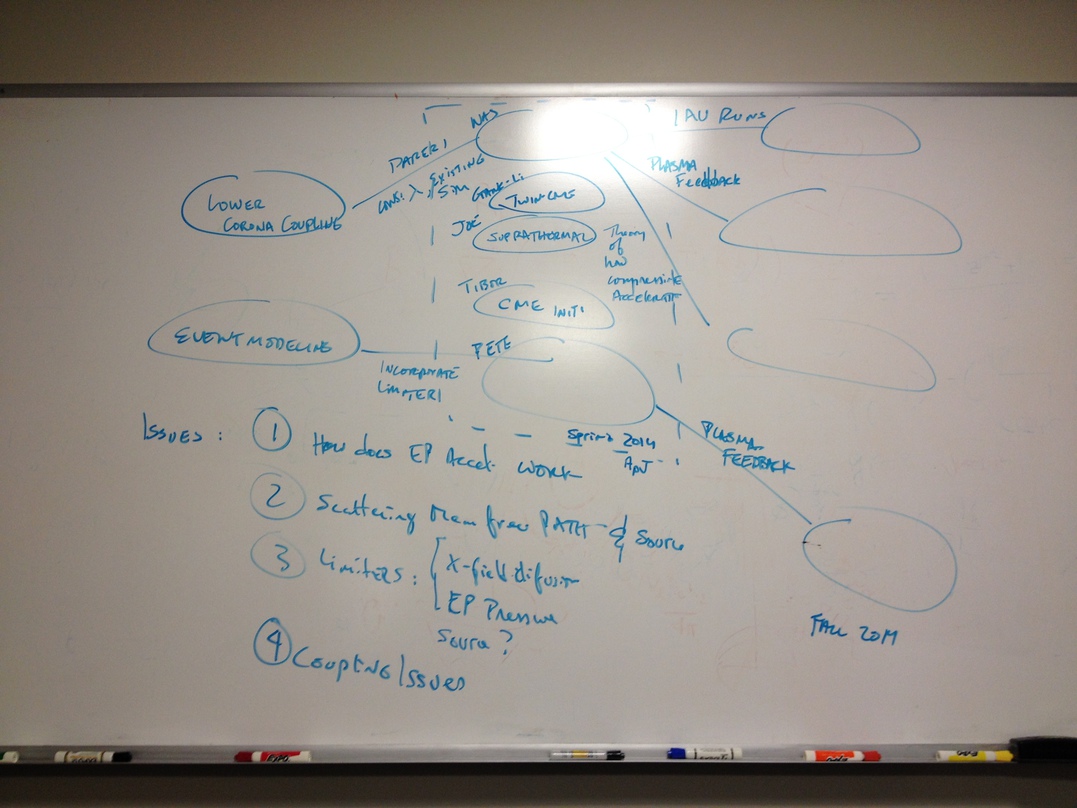 NAS
IAU RUNS
PAPER 1
EXISTING
SIM
PLASMA
Feedback
LOWER
CORONA COUPLING
CONS: λ,
GANG-Li
TWIN CME
JOE
SUPRATHERMAL
Theory
of
how
compressive
Accelerate
TIBOR
CME INITI
EVENT MODELING
PETE
INCORPORATE
LIMITER 1
ISSUES:
1 How does EP Accel. WORK
Spring 2014
APJ
PLASMA
FEEDBACK
2 Scattering Mean free PATH & Source
3 Limiters: X-field difusion
EP Pressure
Source?
4 Coupling Issues
FALL 2014
EXPO